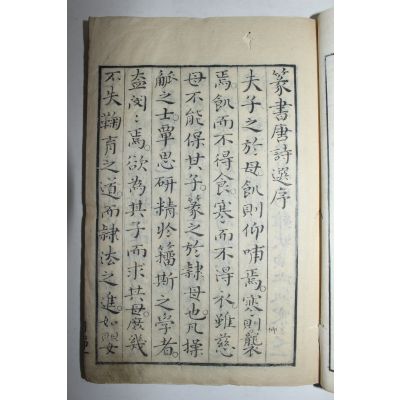 篆書唐詩選序
夫子之於母飢則仰哺焉寒則襲
焉飢而不得食寒而不得衣雖慈
母不能保其子篆之於隷母也凡操
觚之士覃思研精於籀斯之學者
盍閔〻焉欲為其子而求其母庶幾
不失鞠育之道而隷法之進如嬰